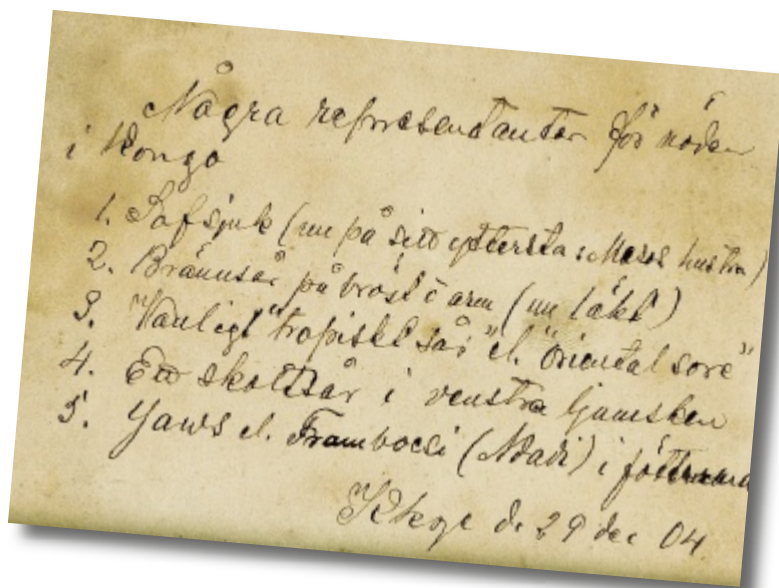 Några representanter för nöden
i Kongo
1. Sofsjuk (nu på sitt yttersta: hustru)
2. Brännsår på bröst o arm (nu läkt)
3. Vanligt "tropiskt sår" el. "oriental sore"
4. Ett skottsår i venstra ljumsken
5. Yaws el. Framboesi (Nsadi) i fötterna
d. 29 dec 04